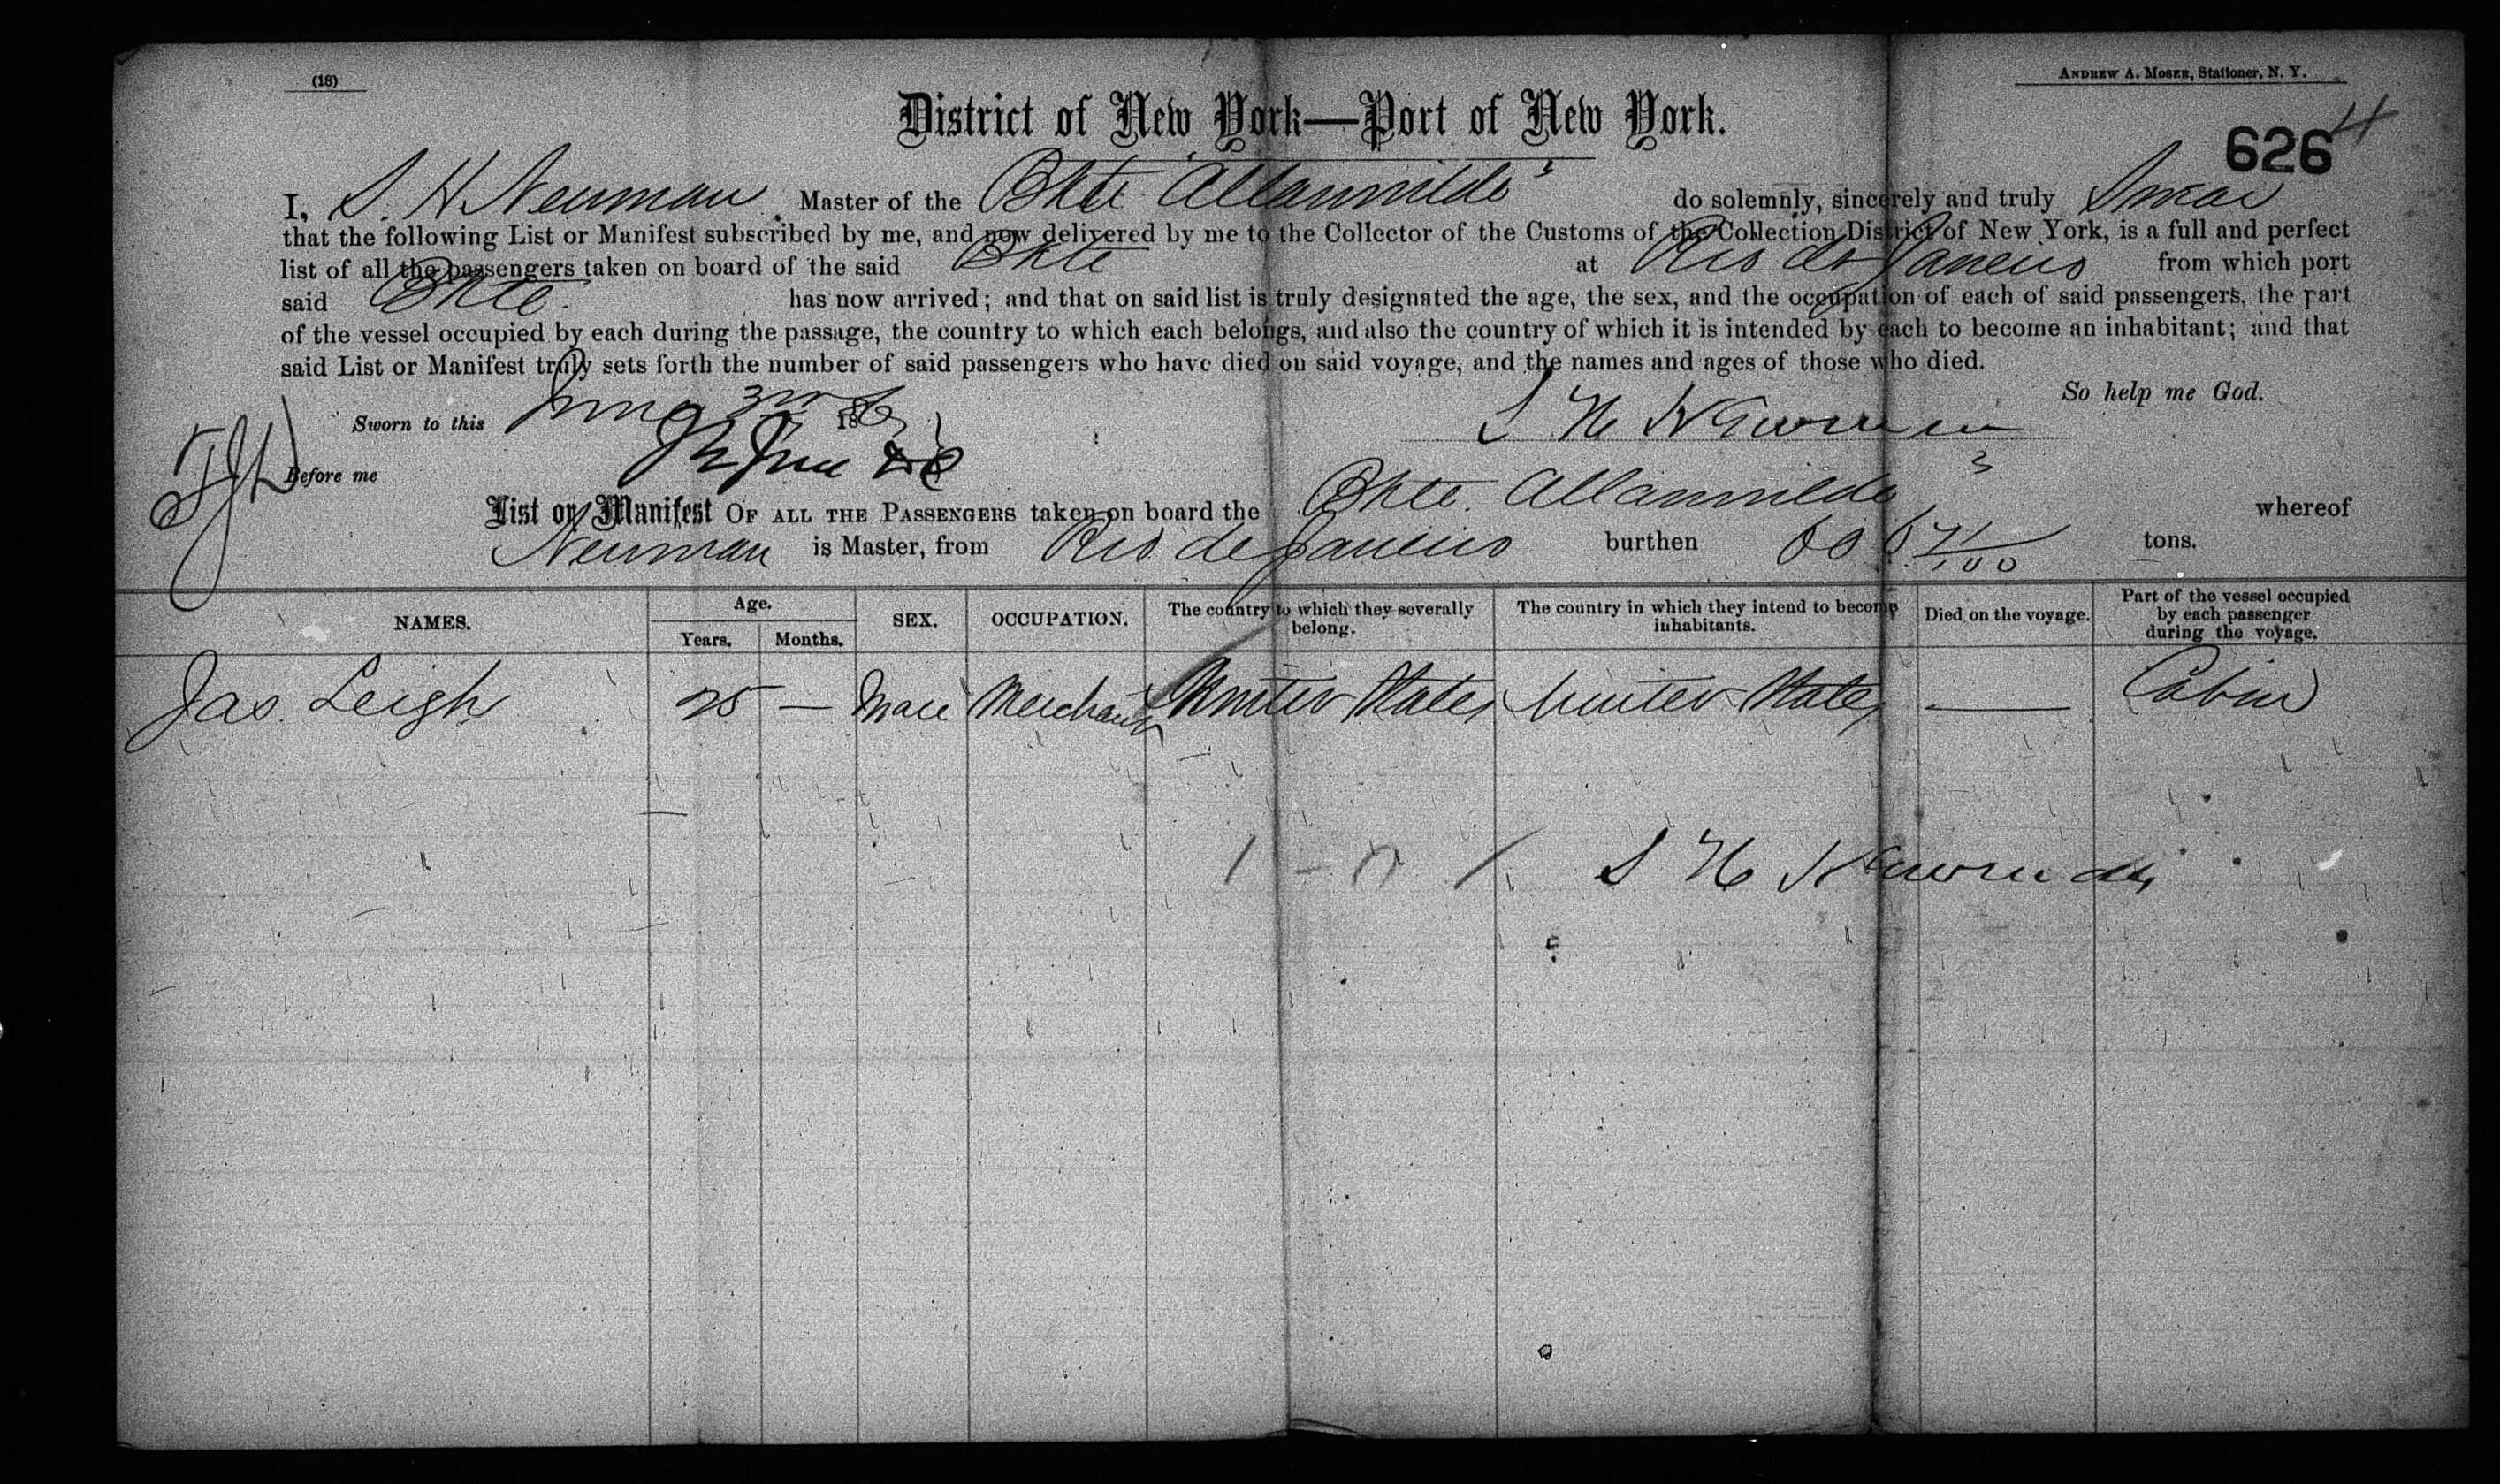 (18)
ANDREW A. MOSER, Stationer, N. Y.
District of New York—Port of New York.
626
I, S. H Neuman Master of the Bkte Allanwilde do solemnly, sincerely and truly Swear
that the following List or Manifest subscribed by me, and now delivered by me to the Collector of the Customs of the Collection District of New York, is a full and perfect
list of all the passengers taken on board of the said Bkte at Rio de Janeiro from which port
said Bkte. has now arrived; and that on said list is truly designated the age, the sex, and the occupation of each of said passengers, the part
of the vessel occupied by each during the passage, the country to which each belongs, and also the country of which it is intended by each to become an inhabitant; and that
said List or Manifest truly sets forth the number of said passengers who have died on said voyage, and the names and ages of those who died.
So help me God.
Sworn to this 18
S H Newman
Before me
List or Manifest OF ALL THE PASSENGERS taken on board the Bkte. Allanwilde whereof
Neuman is Master, from Rio de Janeiro burthen 71/100 tons.
NAMES. Age. Years. Months. SEX. OCCUPATION. The country to which they severally belong. The country in which they intend to become inhabitants. Died on the voyage. Part of the vessel occupied by each passenger during the voyage.
Jas. Leigh 25 — Male Merchant United States United States — Cabin
S H Newman